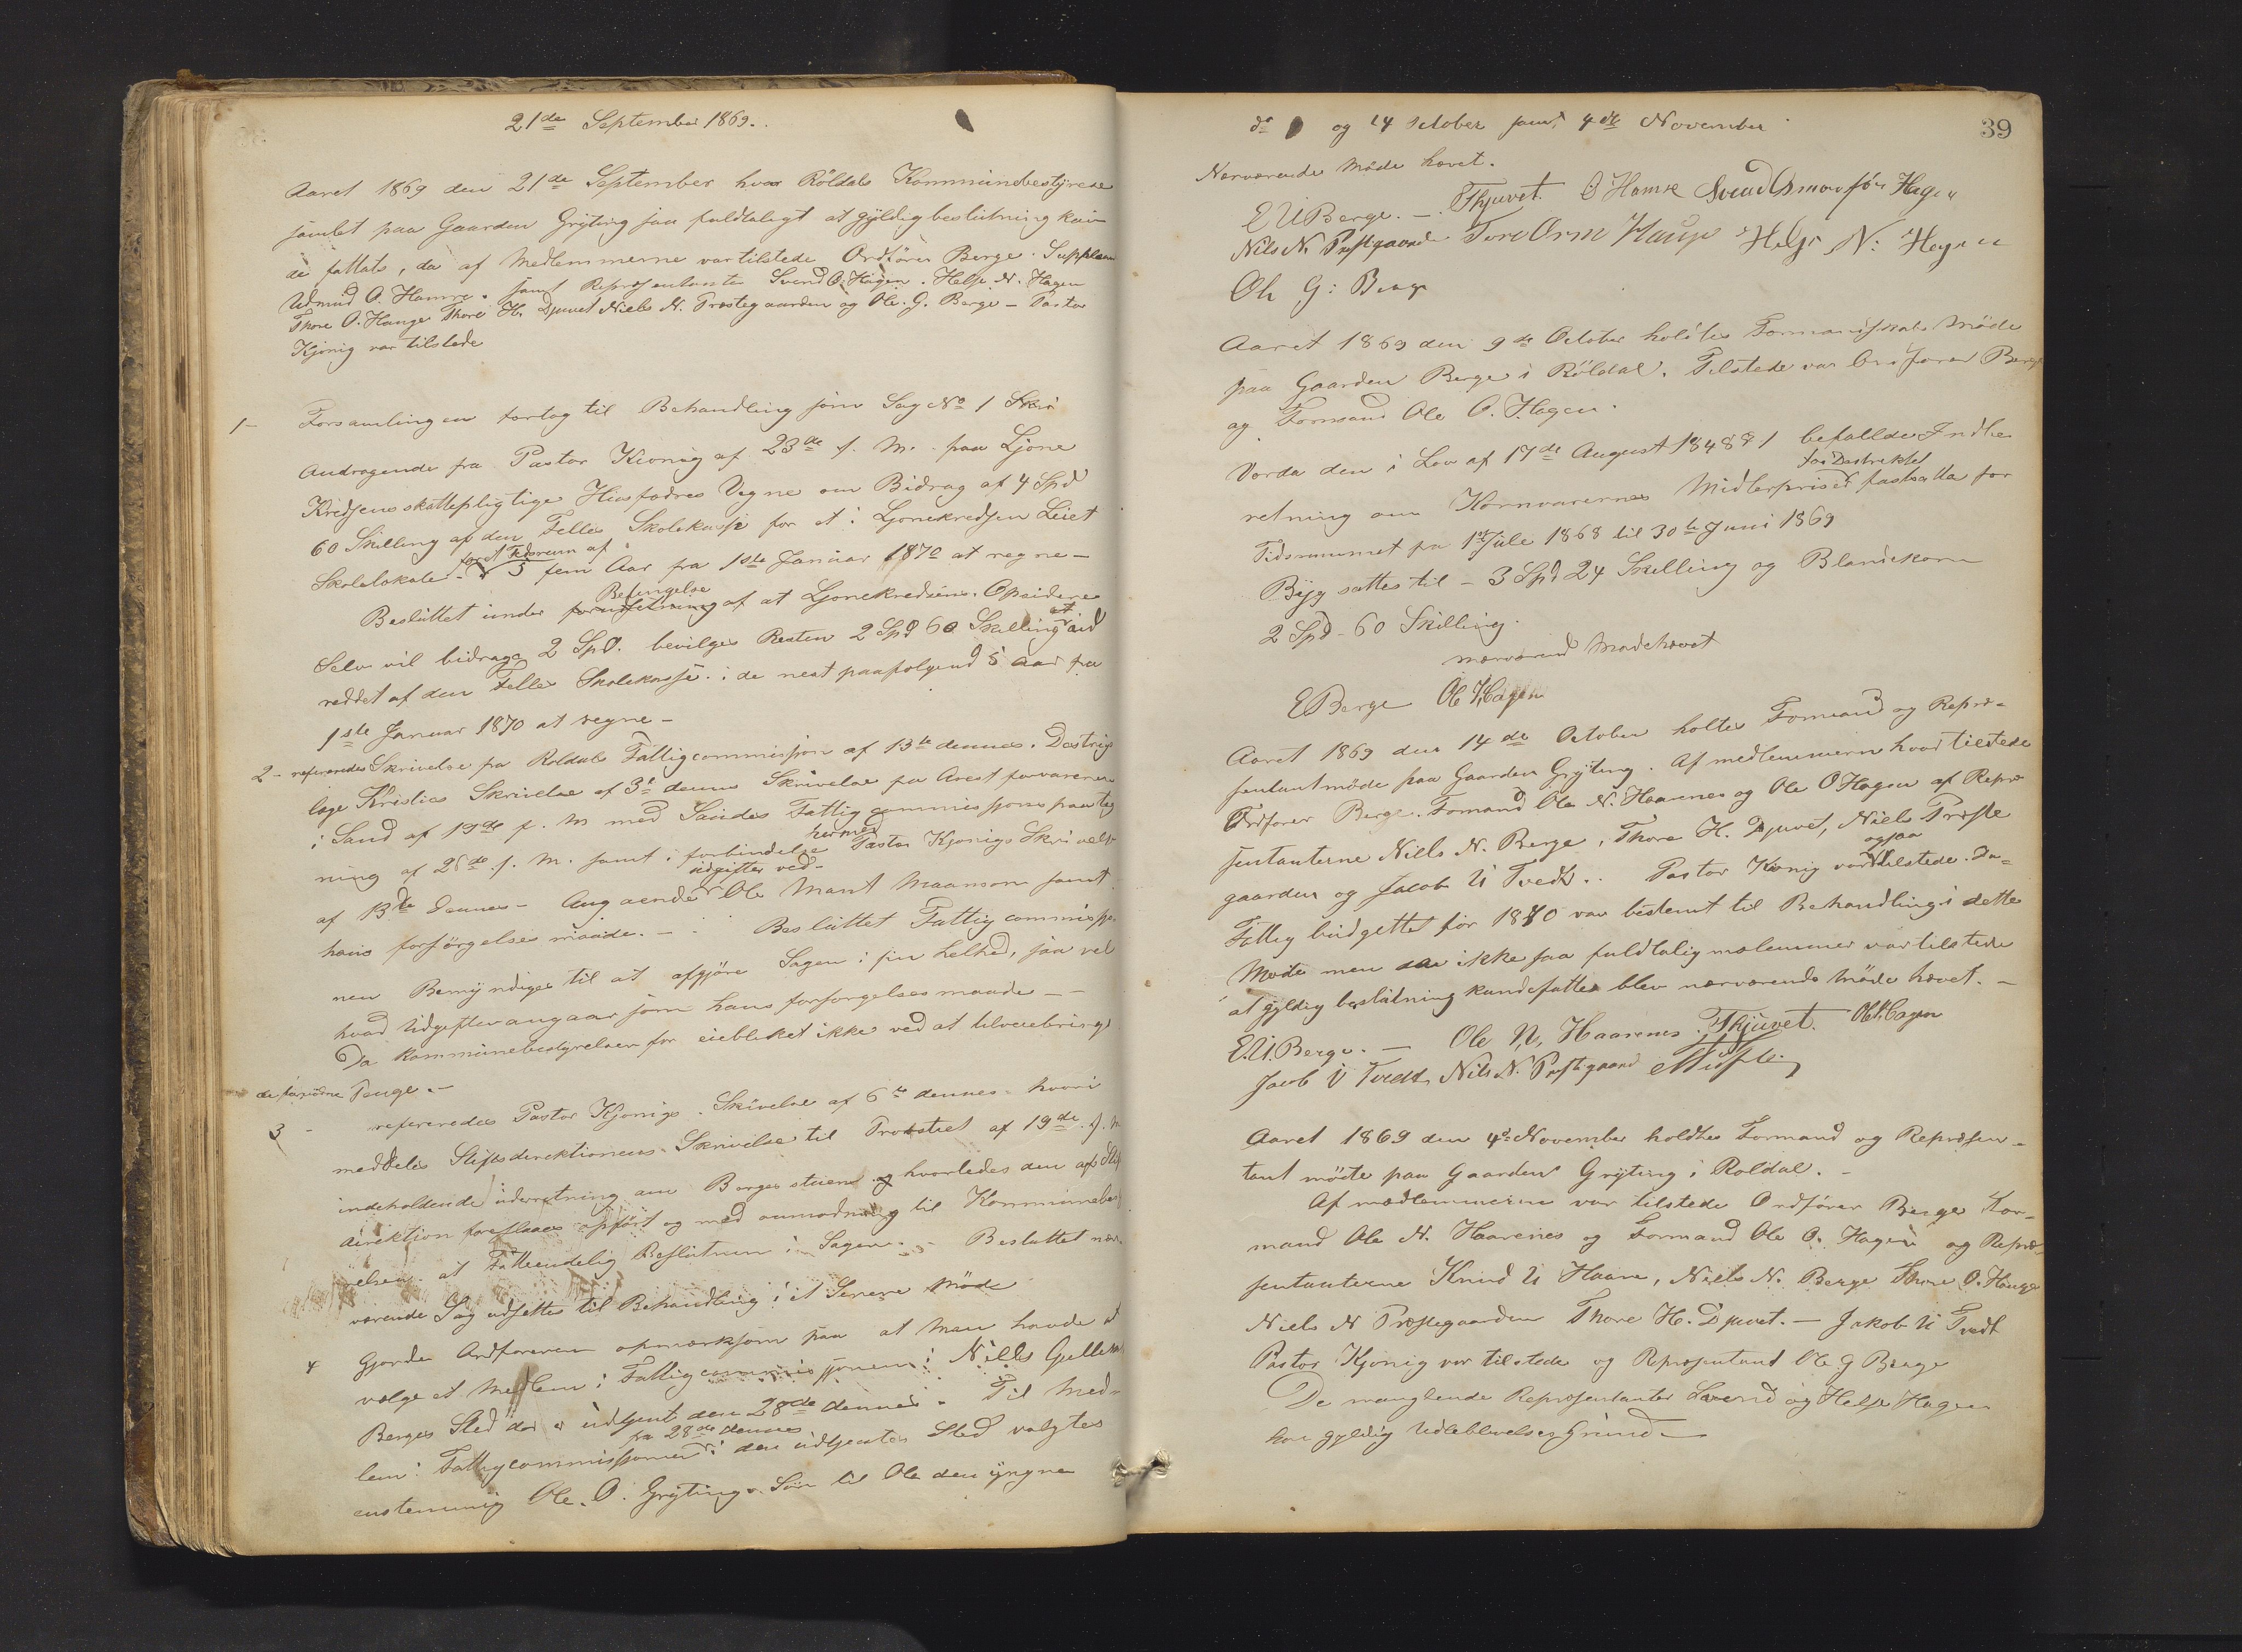 21de September 1869.
Aaret 1869 den 21de September hvor Röldals Kommunebestyrelse
samlet paa Gaarden Gryting saa fuldtaligt at gyldig beslutning kun
de fattats, da af Medlemmerne var tilstede Ordförer Berge. Supplean
Udmund O. Hamre. samt Repræsentanter Svend O. Hagen. Helje N. Hagen
Thore O. Hauge Thore H. Djuvet Niels N. Prestegaarden og Ole. G. Berge – Pastor
Kjönig var tilstede
1– Forsamlingen foretog til Behandling som Sag No 1
Andragende fra Pastor Kiönig af 23de f. M. paa Ljone
Kredsens skattepligtige Husfædres Vegne om Bidrag af 4 Spd
60 Skilling af den Felles Skolekasse for et i Ljonekredsen Leiet
Skolelokale. for et Tidsrum af 5 fem Aar fra 1ste Januar 1870 at regne –
Besluttet under Betingelse af at Ljonekredsens Opsidere
Selv vil bidrage 2 Spd. bevilges Resten 2 Spd 60 Skilling at ud
reddet af den Felles Skolekasse i de nest paafolgend 5 Aar fra
1ste Januar 1870 at regne –
2– refereredes Skrivelse fra Roldals Fattigcommission af 13de dennes. Distrigs
læge Kristies Skrivelse af 3d dennes Skrivelse fra Arestforvareren
i Sand af 19de f. M med Sandes Fattigcommissjons paateg
ning af 26de f. M. samt i forbindelse hermed Pastor Kjönigs Skrivelse
af 13de Dennes – Angaaende udgifter ved Ole Mant Maanson samt
hans forsörgelses maade. – Besluttet Fattigcommissjo
nen Bemyndiges til at afgjöre Sagen i sin helhed, saa vel
hvad Udgifter angaar som hans forsorgelses maade – –
Da Kommunebestyrelsen for eieblikket ikke ved at tilveiebringe
de fornödne Penge. –
3 – refereredes Pastor Kjönigs Skivelse af 6te dennes hvori
meddeles Stiftsdirektionens Skrivelse til Provstiet af 19de f. M
indeholdende underretning om Borgestuen og hvorledes den af Stif
direktion foreslaaes opfört og med anmodning til Kommunebest
relsen at Fatte endelig Beslutnin i Sagen. – Besluttet nær
værende Sag udsettes til Behandling i et Senere Möde
4 Gjorde Ordföreren opmærksom paa at Man havde at
vælge et Medlem i Fattigcommissjonen i Niells
Berges Sted der er udtjent den 28de dennes. Til Med
lem i Fattigcommissjonen fra 28de dennes i den udtjentes Sted valgtes
enstemmig Ole. O. Gryting. Sön til Ole den yngre
39
og 14 October samt 4de November
Nærværende Möde hævet.
E U Berge. – THjuvet. O Hamre Svend Osmonsön Hagen
Nils N. Prestgaard Tore Orm Hauge Helge N: Hagen
Ole G: Berge
Aaret 1869 den 9de October holdtes Formandskabs Möde
paa Gaarden Berge i Röldal. Tilstede var Ordforer Berge
og Formand Ole O. Hagen.
Vorda den i Lov af 17de August 1848 § 1 befallde Indbe
retning om Kornvarernes Midlerpriser for Destriktet fastsatta for
Tidsrummet fra 1ste Juli 1868 til 30te Juni 1869
Byg sattes til – 3 Spd 24 Skelling og Blandekorn
2 Spd – 60 Skilling.
nærværend Mode hævet
E Berge Ole O Hagen
Aaret 1869 den 14de October holtes Formand og Repræ=
sentantmöde paa Gaarden Gryting. Af medlemmern hvor tilstede
Ordforer Berge. Formand Ole N. Haarenes og Ole O Hagen af Repræ
sentanterne Niells N. Berge, Thore H. Djuvet, Niels Præste
gaarden og Jacob U Tvedt.. Pastor Kønig var ogsaa tilstede. Da=
Fattig budgettet for 1870 var bestemt til Behandling i dette
Möde men da ikke saa fuldtalig molemmer var tilstede
at gyldig beslutning kunde fattes blev nærværende Möde hævet. –
E. U. Berge. – Ole N, Haarenes. THjuvet. Ole O Hagen
Jacob U Tvedt Nils N. Prestgaard
Aaret 1869 den 4de November holdtes Formand og Repræsen–
tant möde paa Gaarden Gryting i Roldal. –
Af medlemmerne var tilstede Ordförer Berge For–
mand Ole N. Haarenes og Formand Ole O. Hagen og Repræ–
sentanterne Knud U Haare, Niels N. Berge Thore O. Hauge
Niels N Præstegaarden Thore H. Djuvet. – Jakob U Tvedt
Pastor Kjönig var tilstede og Repræsentant Ole G Berge
De manglende Repræsentanter Svend og Helje Hagen
har gyldig Udeblevelses Grund –